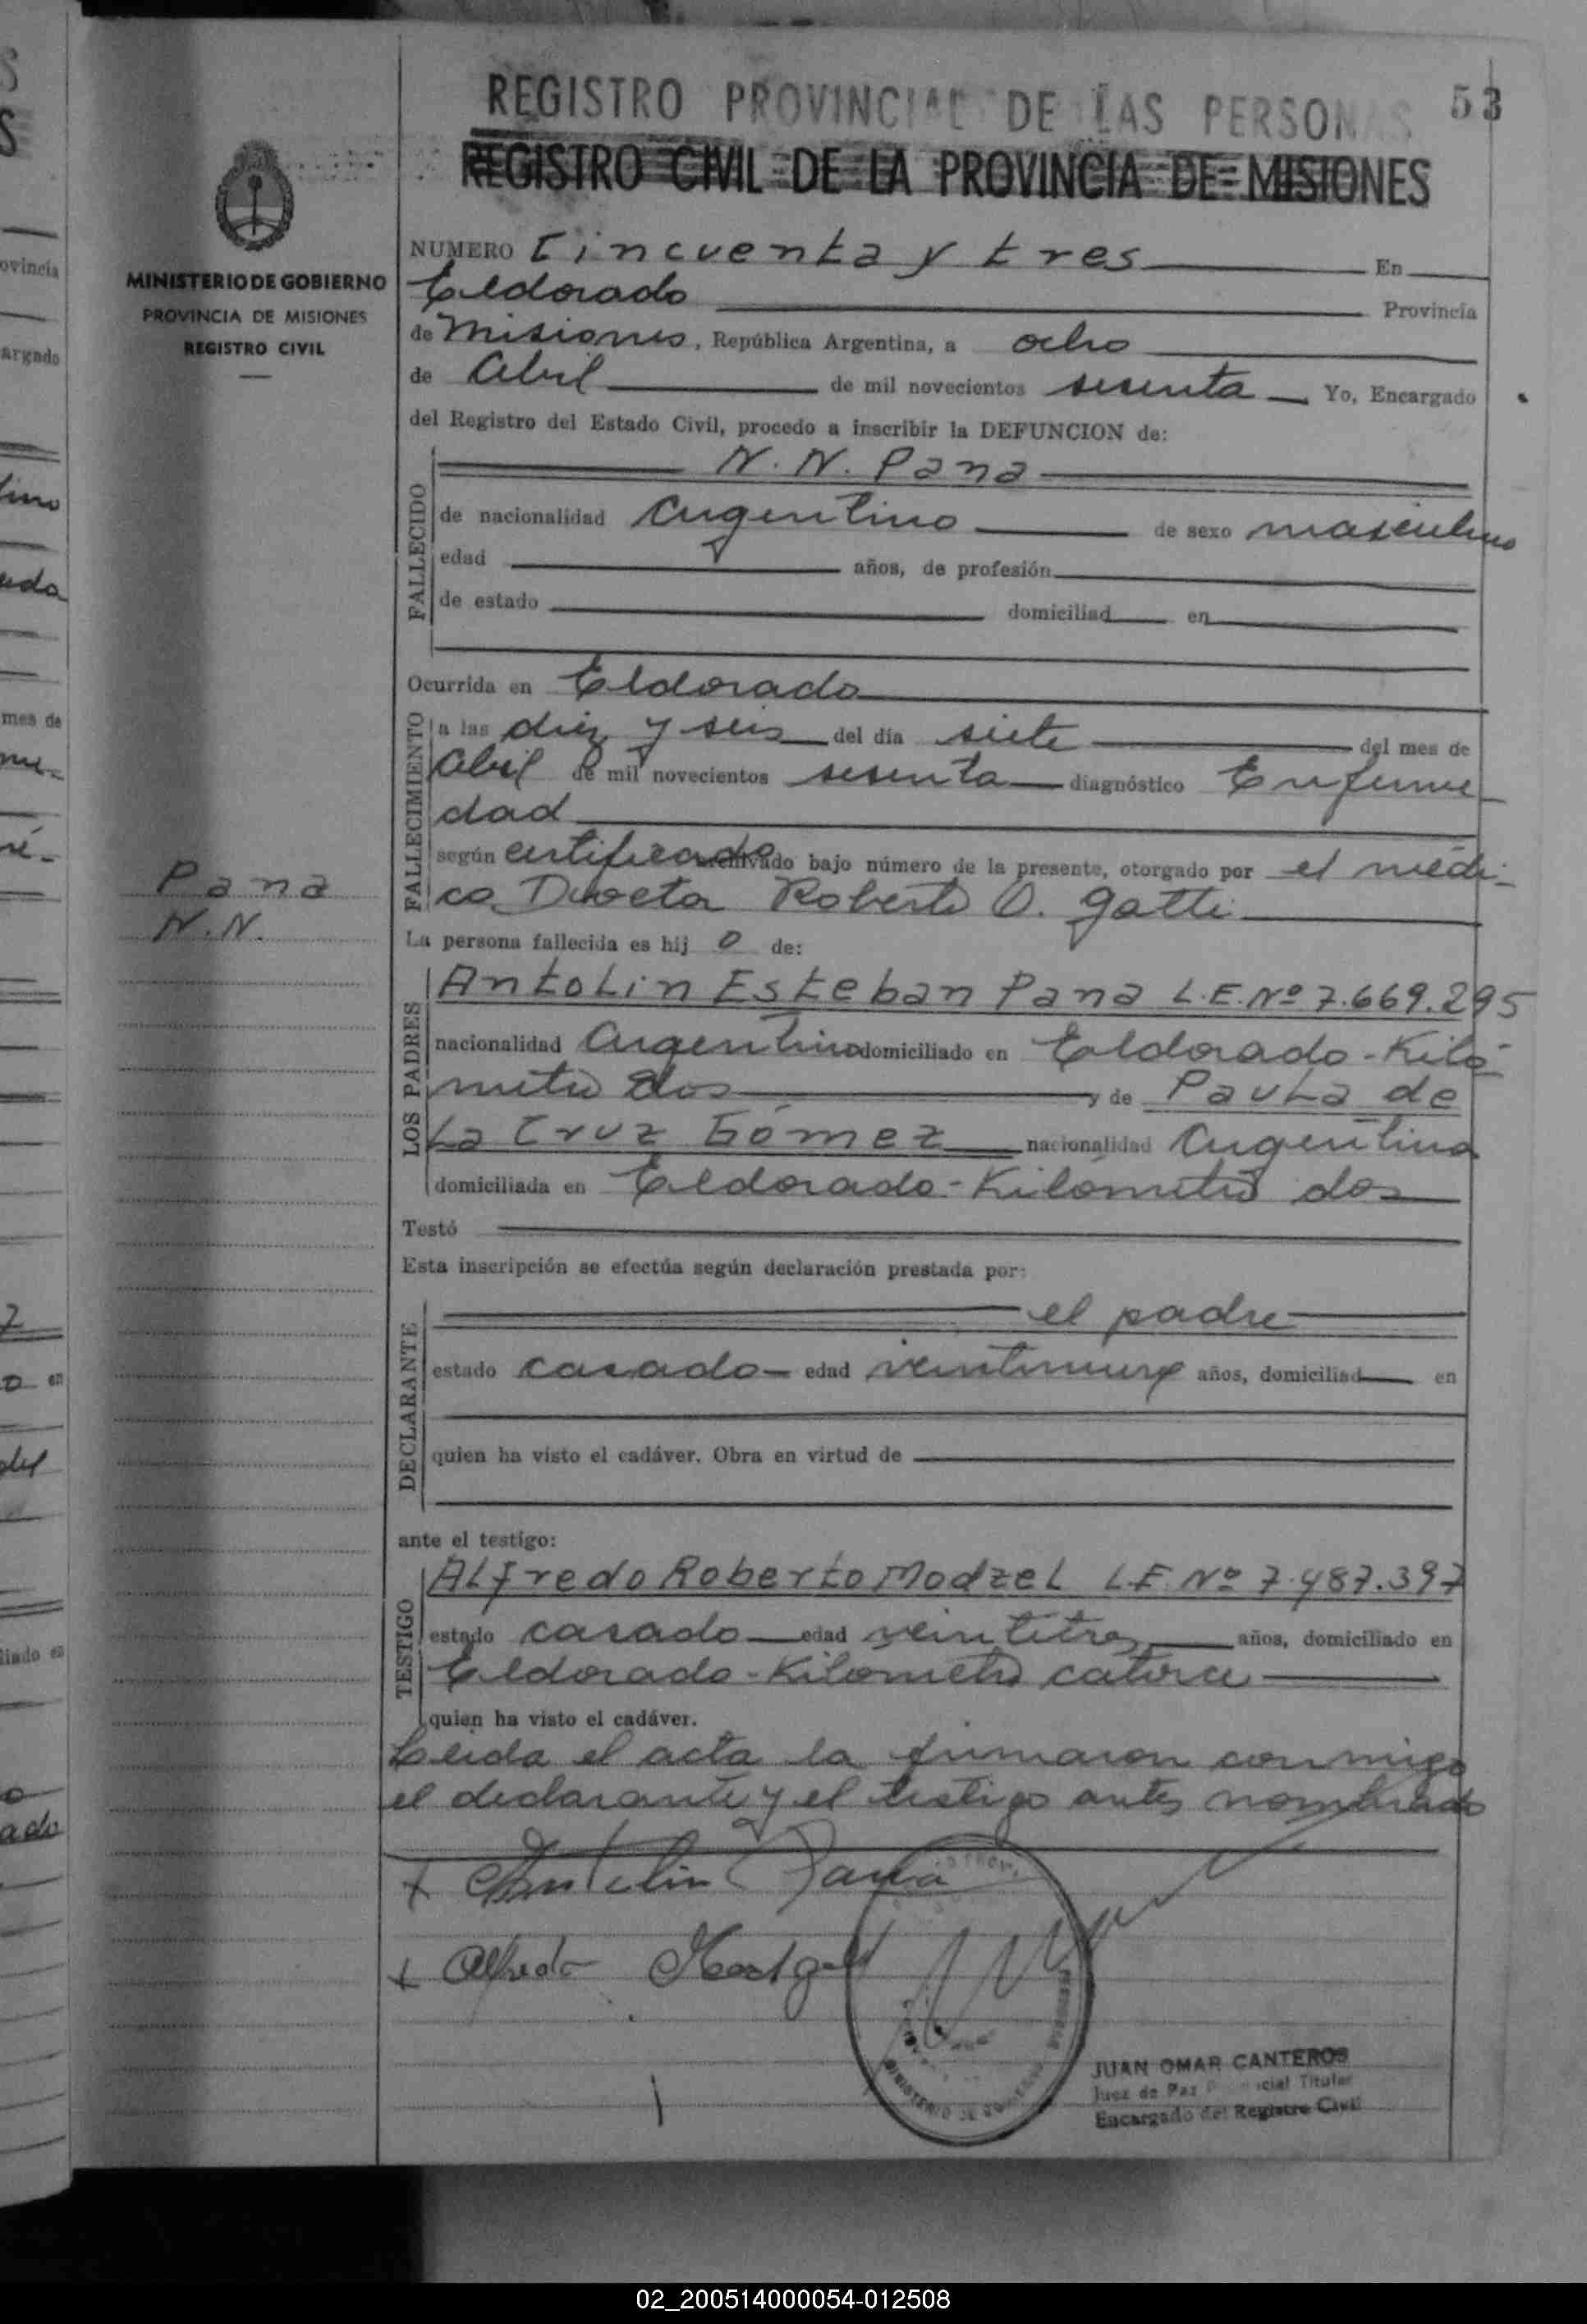 REGISTRO PROVINCIAL DE LAS PERSONAS 53
REGISTRO CIVIL DE LA PROVINCIA DE MISIONES
MINISTERIO DE GOBIERNO
PROVINCIA DE MISIONES
REGISTRO CIVIL
NUMERO Cincuenta y tres En
Eldorado Provincia
de Misiones, República Argentina, a ocho
de Abril de mil novecientos sesenta Yo, Encargado
del Registro del Estado Civil, procedo a inscribir la DEFUNCION de:
N. N. Pana
FALLECIDO
de nacionalidad Argentino de sexo masculino
edad años, de profesión
de estado domiciliad en
Ocurrida en Eldorado
FALLECIMIENTO
a las diez y seis del día siete del mes de
Abril de mil novecientos sesenta diagnóstico Enferme-
dad
según certificado archivado bajo número de la presente, otorgado por el médi-
co Director Roberto O. Gatti
Pana
N.N.
La persona fallecida es hij o de:
LOS PADRES
Antolin Esteban Pana L.E. Nº 7.669.295
nacionalidad Argentino domiciliado en Eldorado - Kiló-
metro dos y de Paula de
La Cruz Gómez nacionalidad Argentina
domiciliada en Eldorado - Kilómetro dos
Testó
Esta inscripción se efectúa según declaración prestada por:
el padre
DECLARANTE
estado casado edad veintinueve años, domiciliad en
quien ha visto el cadáver. Obra en virtud de
ante el testigo:
TESTIGO
Alfredo Roberto Modzel L.E. Nº 7.487.397
estado casado edad veintitres años, domiciliado en
Eldorado - Kilómetro catorce
quien ha visto el cadáver.
Leida el acta la firmaron conmigo
el declarante y el testigo antes nombrado
+ Antolin Pana
+ Alfredo Modzel
MINISTERIO DE GOBIERNO
JUAN OMAR CANTEROS
Juez de Paz Titular
Encargado del Registro Civil
02_200514000054-012508